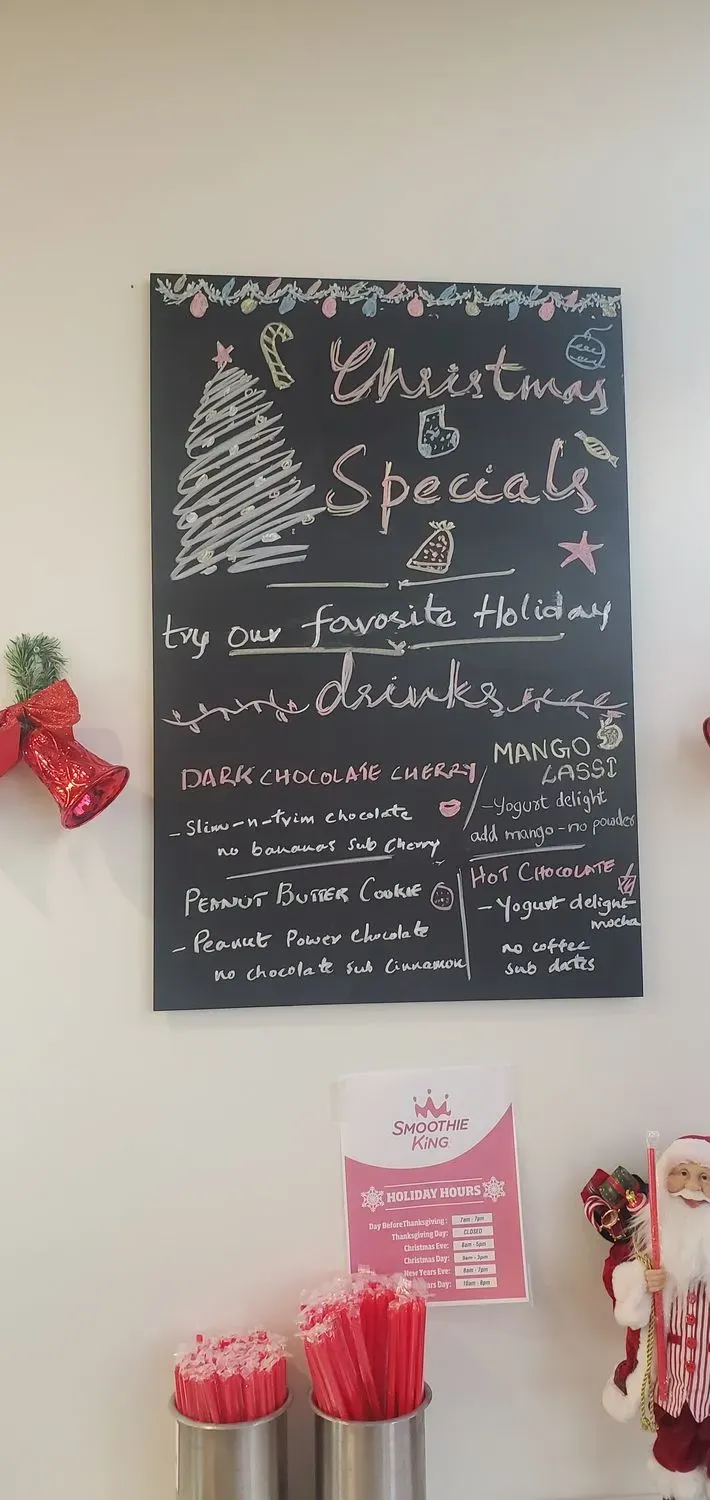 Christmas
Specials
try our favorite Holiday
drinks
DARK CHOCOLATE CHERRY
- Slim-n-trim chocolate
no bananas sub Cherry
MANGO
LASSI
- Yogurt delight
add mango - no powder
PEANUT BUTTER COOKIE
- Peanut Power Chocolate
no chocolate sub Cinnamon
HOT CHOCOLATE
- Yogurt delight
mocha
no coffee
sub dates
SMOOTHIE
KING
HOLIDAY HOURS
Day BeforeThanksgiving: 7am - 7pm
Thanksgiving Day: CLOSED
Christmas Eve: 8am - 5pm
Christmas Day: 9am - 3pm
New Years Eve: 8am - 7pm
Day: 10am - 6pm